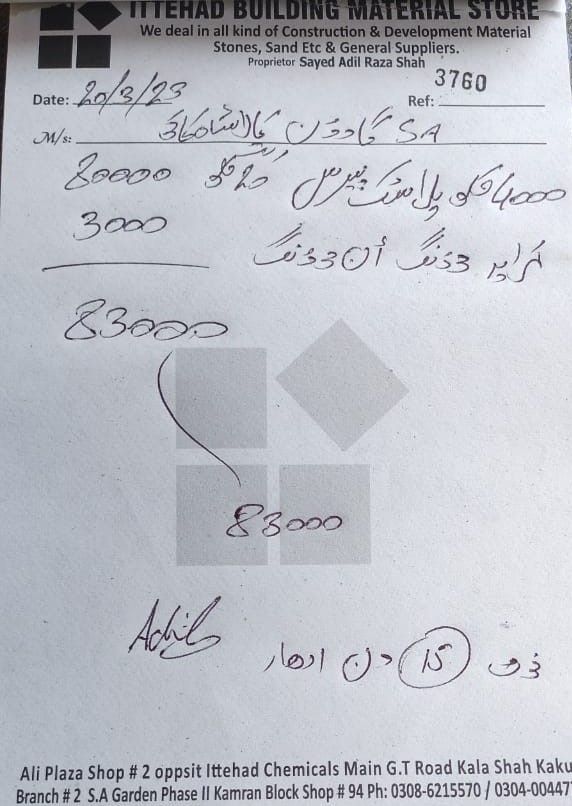 ITTEHAD BUILDING MATERIAL STORE
We deal in all kind of Construction & Development Material
Stones, Sand Etc & General Suppliers.
Proprietor Sayed Adil Raza Shah
Date: 20/3/23 Ref: 3760
M/s: SA گارڈن کالا شاہ کاکو
4000 کلو پلاسٹر پیرس 80000
کرایہ 3000
83000
83000
Adil
نوٹ 15 دن ادھار
Ali Plaza Shop # 2 oppsit Ittehad Chemicals Main G.T Road Kala Shah Kaku
Branch # 2 S.A Garden Phase II Kamran Block Shop # 94 Ph: 0308-6215570 / 0304-00447